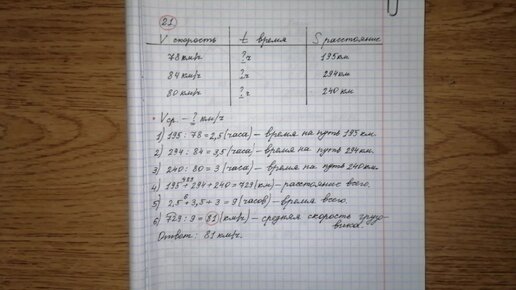 21
V скорость t время S расстояние
78 км/ч ? ч 195 км
84 км/ч ? ч 294 км
80 км/ч ? ч 240 км
• Vср. – ? км/ч
1) 195 : 78 = 2,5 (часа) – время на путь 195 км.
2) 294 : 84 = 3,5 (часа) – время на путь 294 км.
3) 240 : 80 = 3 (часа) – время на путь 240 км.
489
4) 195 + 294 + 240 = 729 (км) – расстояние всего.
6
5) 2,5 + 3,5 + 3 = 9 (часов) – время всего.
6) 729 : 9 = 81 (км/ч) – средняя скорость грузо-
вика.
Ответ: 81 км/ч.